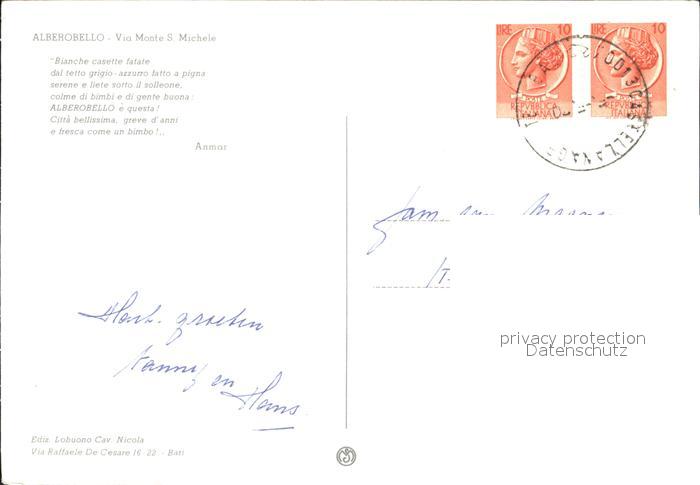 ALBEROBELLO - Via Monte S. Michele
"Bianche casette fatate
dal tetto grigio-azzurro fatto a pigna
serene e liete sotto il solleone,
colme di bimbi e di gente buona:
ALBEROBELLO è questa!
Città bellissima, greve d'anni
e fresca come un bimbo!..
Anmar
LIRE 10
POSTE
REPVBBLICA
ITALIANA
LIRE 10
REPVBBLICA
ITALIANA
Fam
Hart. groeten
Fanny en
Hans
privacy protection
Datenschutz
Ediz. Lobuono Cav. Nicola
Via Raffaele De Cesare 16-22 - Bari